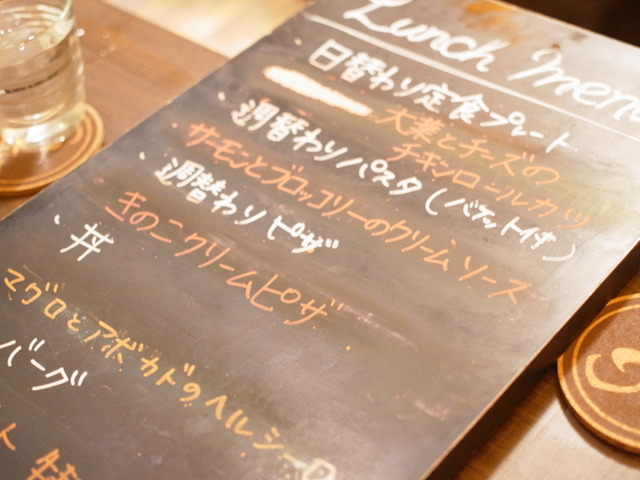 Lunch menu
・日替わり定食プレート
大葉とチーズの
チキンロールカツ
・週替わりパスタ(バケット付き)
サーモンとブロッコリーのクリームソース
・週替わりピザ
きのこクリームピザ
・丼
マグロとアボカドのヘルシー
バーグ
ト